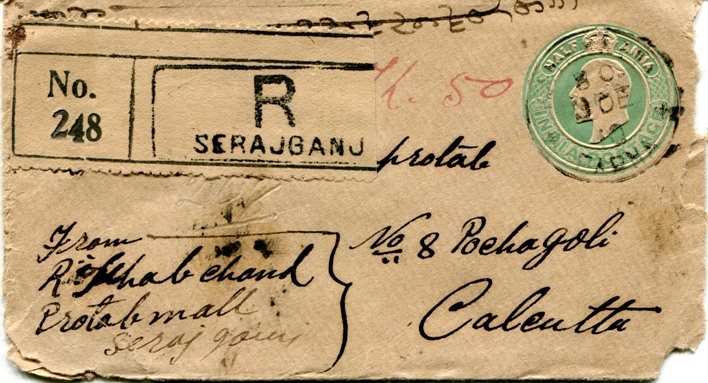 No.
248
R
SERAJGANJ
50
HALF ANNA
INDIA POSTAGE
protab
No 8 Pochagoli
Calcutta
From
chand
Protab mall
Serajganj